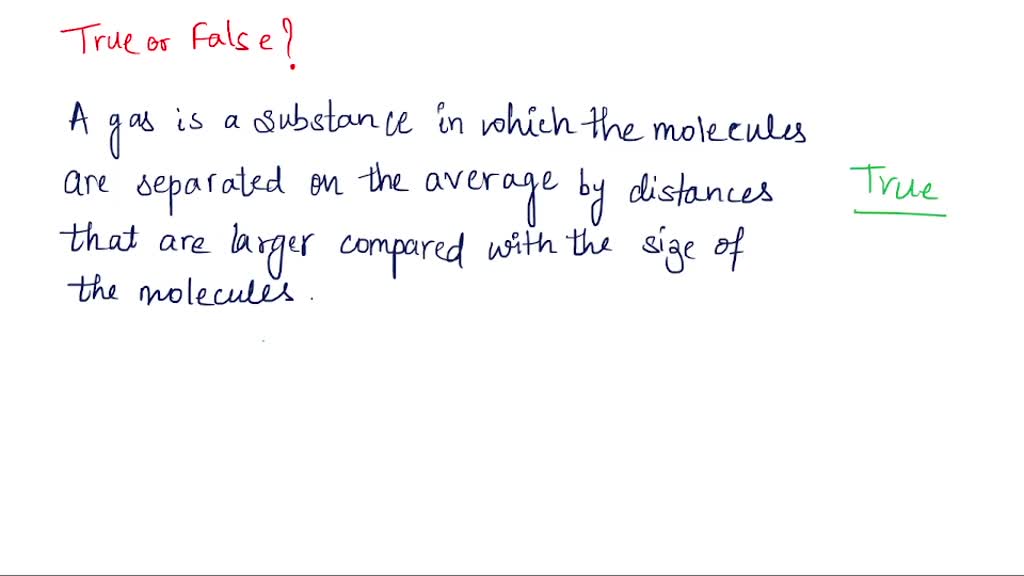 True or False?
A gas is a substance in which the molecules
are separated on the average by distances
True
that are larger compared with the size of
the molecules.